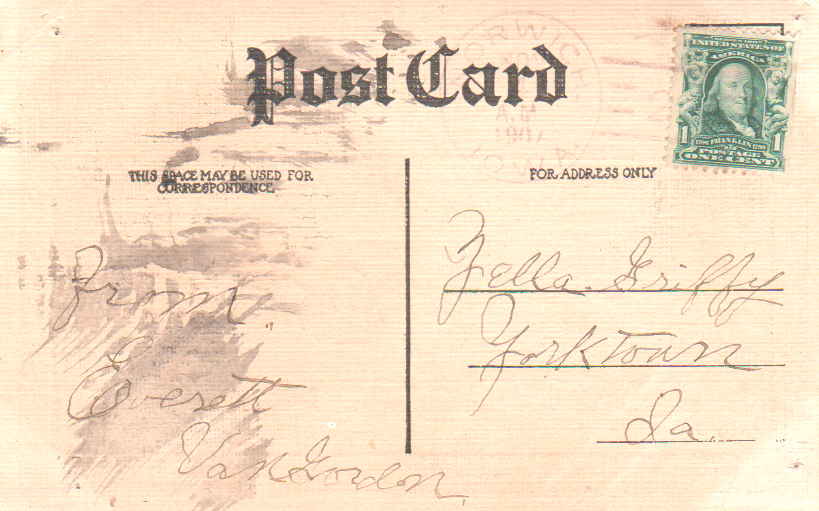 Post Card
NORWICH
A.M.
IOWA
UNITED STATES OF
AMERICA
1 FRANKLIN
POSTAGE 1
ONE CENT
THIS SPACE MAY BE USED FOR
CORRESPONDENCE
FOR ADDRESS ONLY
From
Everett
VanGordon.
Zella Griffy
Yorktown
Ia.